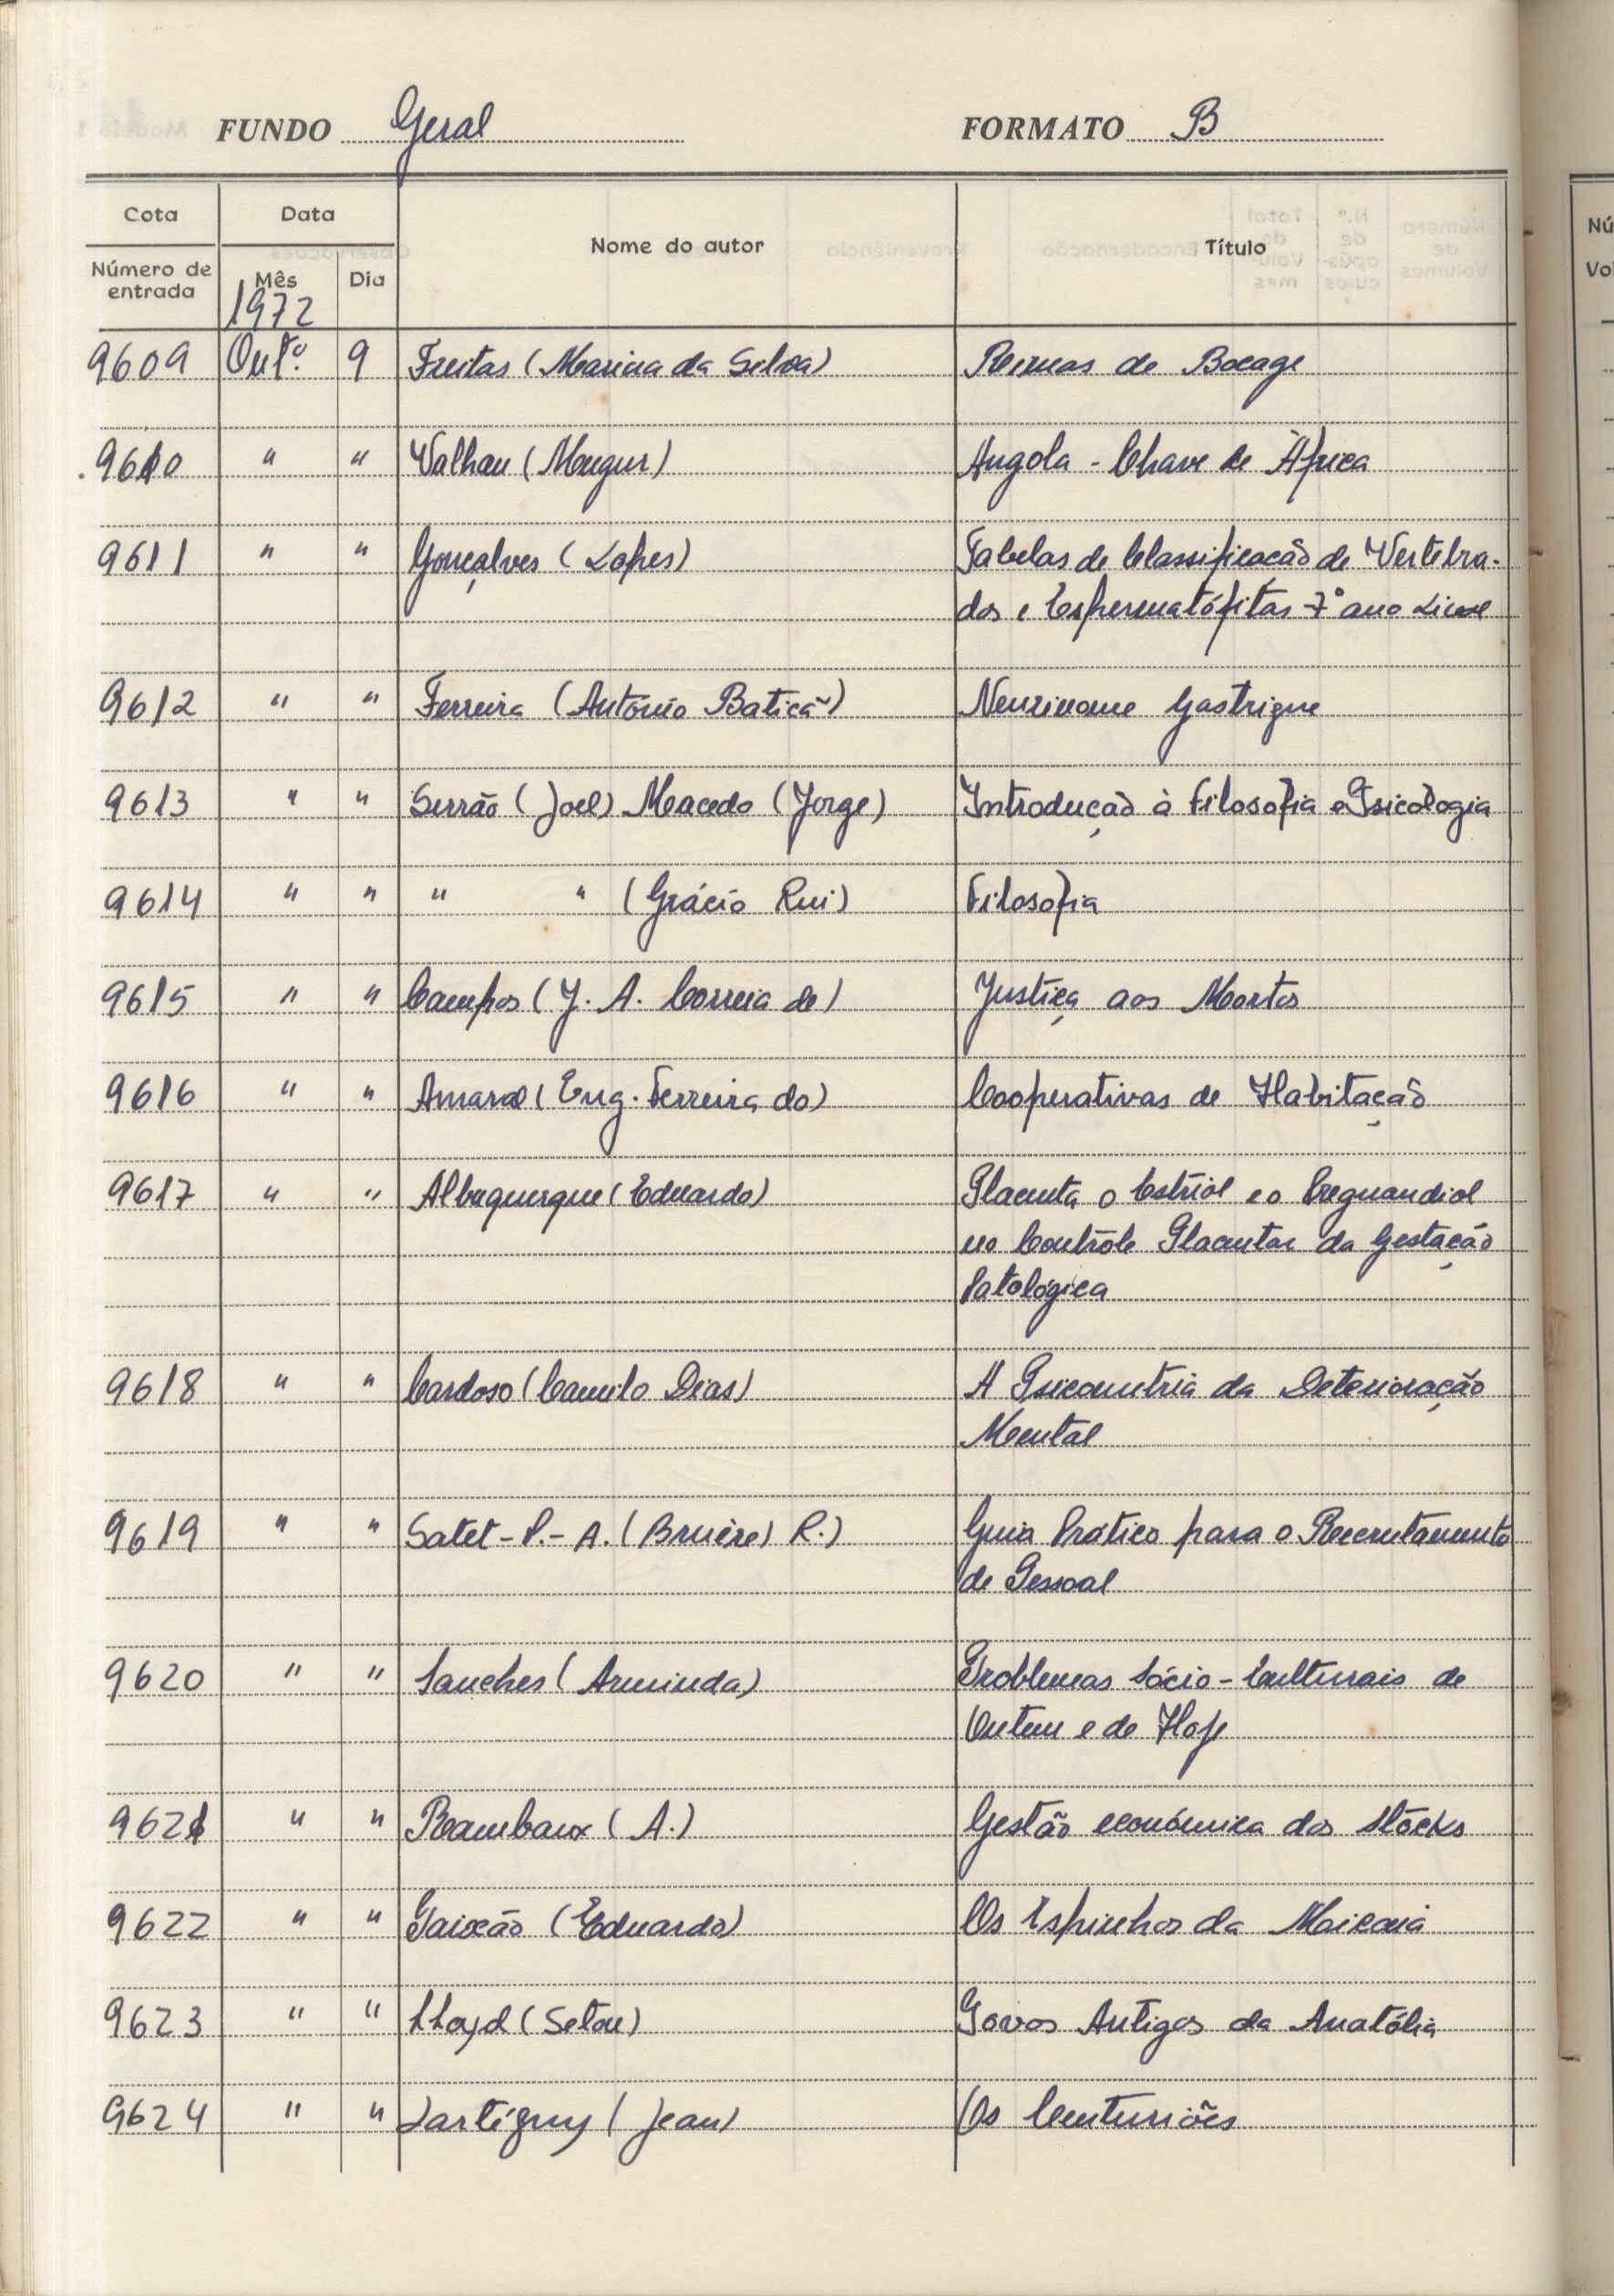 FUNDO Geral FORMATO B
Cota Data Nome do autor Título
Número de entrada Mês Dia
1972
9609 Outº. 9 Freitas (Marina da Silva) Rimas de Bocage
9610 " " Valhau (Mugur) Angola - Chave de África
9611 " " Gonçalves (Lopes) Tabelas de Classificação de Vertebra-
dos e Espermatófitas 7º ano Liceal
9612 " " Ferreira (António Baticã) Neurinome Gastrique
9613 " " Serrão (Joel) Macedo (Jorge) Introdução à Filosofia e Psicologia
9614 " " " " (Grácio Rui) Filosofia
9615 " " Campos (J. A. Correia de) Justiça aos Mortos
9616 " " Amaral (Eng. Ferreira do) Cooperativas de Habitação
9617 " " Albuquerque (Eduardo) Placenta o Estriol e o Pregnandiol
no Contrôle Placentar da Gestação
Patológica
9618 " " Cardoso (Camilo Dias) A Psicometria da Deterioração
Mental
9619 " " Satet - P. - A. (Bruère) R.) Guia Prático para o Recrutamento
de Pessoal
9620 " " Sanches (Arminda) Problemas Sócio - Culturais de
Ontem e de Hoje
9621 " " Rambaux (A.) Gestão económica dos Stócks
9622 " " Paixão (Eduardo) Os Espinhos da Micaia
9623 " " Lloyd (Seton) Povos Antigos da Anatólia
9624 " " Lartéguy (Jean) Os Centuriões